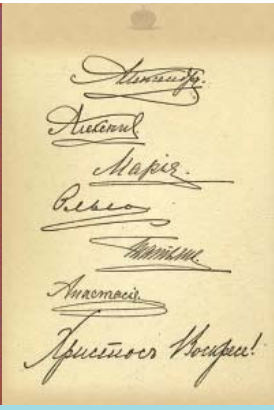 Александра.
Алексѣй
Марія.
Ольга
Татьяна.
Анастасія.
Христосъ Воскресе!